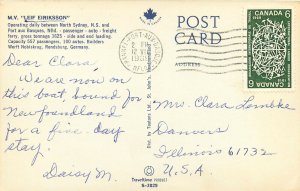 M.V. "LEIF EIRIKSSON"
Operating daily between North Sydney, N.S. and
Port aux Basques, Nfld. - passenger - auto - freight
ferry, gross tonnage 3025 - side and end loading.
Capacity 557 passengers, 100 autos. Builders
Werft Nobiskrug, Rendsburg, Germany.
POST
CARD
ADDRESS
CANADA
6
Dear Clara,
We are now on
this boat bound for
Newfoundland
for a five-day
stay
Daisy M.
Mrs. Clara Lembke
Danvers
Illinois 61732
U.S.A.
Traveltime
S-3829